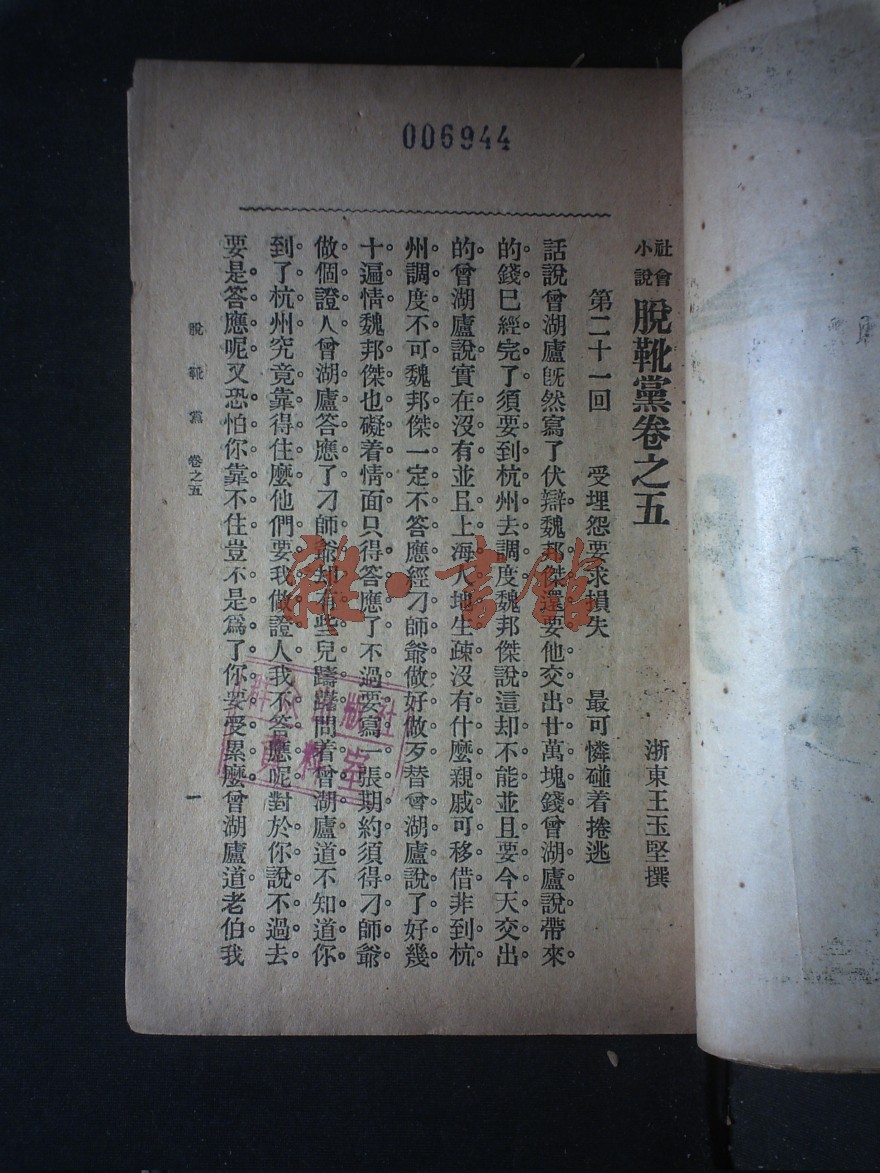 006944
社會小說 脫靴黨卷之五
浙東王玉堅撰
第二十一回 受埋怨要求損失 最可憐碰着捲逃
話說曾湖廬旣然寫了伏辯魏邦傑還要他交出廿萬塊錢曾湖廬說帶來。
的錢已經完了須要到杭州去調度魏邦傑說這却不能並且要今天交出
的曾湖廬說實在沒有並且上海人地生疎沒有什麼親戚可移借非到杭
州調度不可魏邦傑一定不答應經刁師爺做好做歹替曾湖廬說了好幾
十遍情魏邦傑也礙着情面只得答應了不過要寫一張期約須得刁師爺
做個證人曾湖廬答應了刁師爺却有些兒躊躇問着曾湖廬道不知道你。
到了杭州究竟靠得住麼他們要我做證人我不答應呢對於你說不過去。
要是答應呢又恐怕你靠不住豈不是爲了你要受累麼曾湖廬道老伯我
脫靴黨 卷之五
一
雜·書館
版社